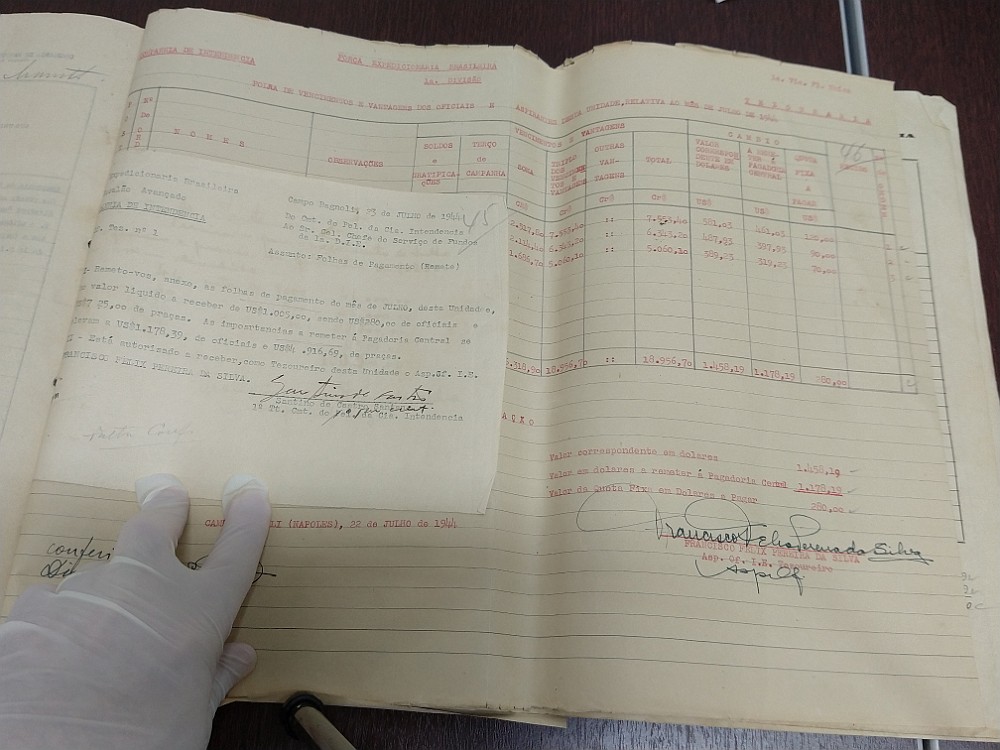 COMPANHIA DE INTENDENCIA
FORÇA EXPEDICIONARIA BRASILEIRA
1a. DIVISÃO
1a. Via. Fl. Unica
TESOURARIA
FOLHA DE VENCIMENTOS E VANTAGENS DOS OFICIAIS E ASPIRANTES DESTA UNIDADE, RELATIVA AO MÊS DE JULHO DE 1944
VENCIMENTOS E VANTAGENS
CAMBIO
46
Nº De
NOMES
OBSERVAÇÕES
SOLDOS e GRATIFICAÇÕES
TERÇO de CAMPANHA
SOMA
TRIPLO DOS VENCIMENTOS E VANTAGENS
OUTRAS VANTAGENS
TOTAL
VALOR CORRESPONDENTE EM DOLARES
A REMETER Á PAGADORIA GENERAL
QUOTA FIXA A PAGAR
CR$ CR$ CR$ CR$ US$ US$ US$
2.517,80 7.553,40 :: 7.553,40 581,03 461,03 120,00
2.114,40 6.343,20 :: 6.343,20 487,93 397,93 90,00
1.686,70 5.060,10 :: 5.060,10 389,23 319,23 70,00
6.318,90 18.956,70 :: 18.956,70 1.458,19 1.178,19 280,00
Expedicionaria Brasileira
Escalão Avançado
COMPANHIA DE INTENDENCIA
Tes. nº 1
Campo Bagnoli, 23 de JULHO de 1944
45
Do Cmt. do Pel. da Cia. Intendencia
Ao Sr. Cel. Chefe do Serviço de Fundos
da 1a. D.I.E.
Assunto: Folhas de Pagamento (Remete)
- Remeto-vos, anexo, as folhas de pagamento do mês de JULHO, desta Unidade,
valor liquido a receber de US$1.005,00, sendo US$280,00 de oficiais e
25,00 de praças. As importancias a remeter á Pagadoria Central se
elevam a US$1.178,39, de oficiais e US$4.916,69, de praças.
- Está autorizado a receber, como Tesoureiro desta Unidade o Asp.Of. I.E.
FRANCISCO FELIX PEREIRA DA SILVA.
1º Tt. Cmt. do Pel. da Cia. Intendencia
AÇÃO
Valor correspondente em dolares 1.458,19
Valor em dolares a remeter á Pagadoria Central 1.178,19
Valor da Quota Fixa em Dolares a Pagar 280,00
(NAPOLES), 22 de JULHO de 1944
Francisco Felix Pereira da Silva
FRANCISCO FELIX PEREIRA DA SILVA
Asp. Of. I.E. Tesoureiro
Asp Of
conferi